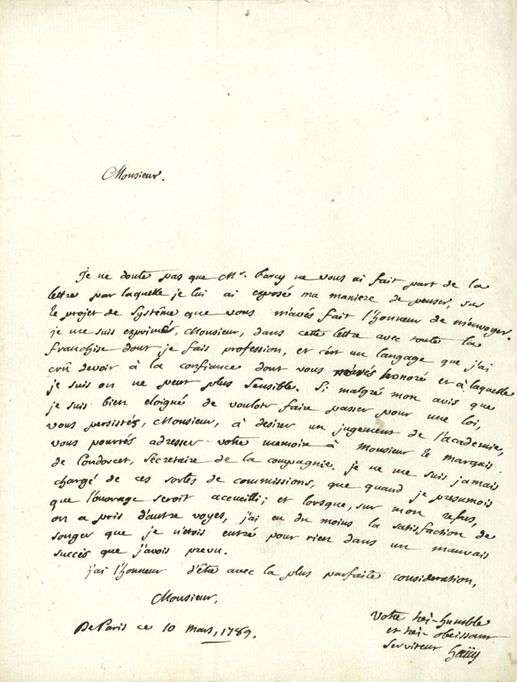 Monsieur.
Je ne doute pas que Mr. Parcy ne vous ai fait part de la
lettre par laquelle je lui ai exposée ma maniere de penser, sur
le projet de systême que vous m'avés fait l'honneur de m'envoyer.
je me suis exprimé, Monsieur, dans cette lettre avec toute la
franchise dont je fais profession, et c'est un langage que j'ai
crû devoir à la confiance dont vous m'avés honoré et à laquelle
je suis on ne peut plus sensible. Si malgré mon avis que
je suis bien eloigné de vouloir faire passer pour une loi,
vous persistés, Monsieur, à desirer un jugement de l'academie,
vous pourrés adresser votre memoire à monsieur le marquis
de Condorcet, Secretaire de la compagnie. je ne me suis jamais
chargé de ces sortes de commissions, que quand je presumois
que l'ouvrage seroit accueilli; et lorsque, sur mon refus,
on a pris d'autre voyes, j'ai eu du moins la satisfaction de
songer que je n'etois entré pour rien dans un mauvais
succès que j'avois prevu.
j'ai l'honneur d'être avec la plus parfaite consideration,
Monsieur,
De Paris ce 10 mars, 1789.
votre très-humble
et très-obeissant
Serviteur haüy